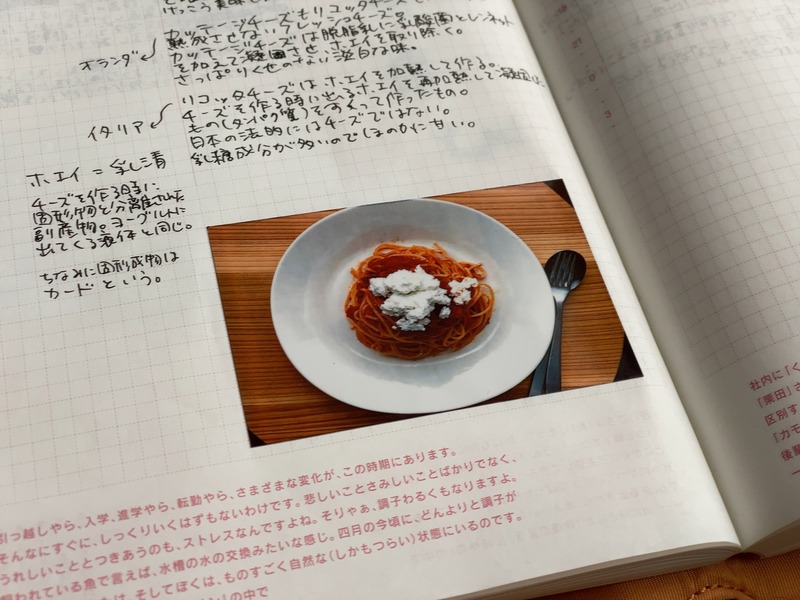 けっこう美味し
カッテージチーズもリコッタチーズも
熟成させないフレッシュチーズ。
カッテージチーズは脱脂乳に乳酸菌とレンネット
を加えて凝固させ、ホエイを取り除く。
さっぱりくせのない淡白な味。
オランダ
リコッタチーズはホエイを加熱して作る。
チーズを作る時に出るホエイを再加熱して凝固した
もの(タンパク質)をすくって作ったもの。
日本の法的にはチーズではない。
乳糖成分が多いのでほのかに甘い。
イタリア
ホエイ=乳清
チーズを作る時に
固形物と分離された
副産物。ヨーグルトに
出てくる液体と同じ。
ちなみに固形成物は
カードという。
引っ越しやら、入学、進学やら、転勤やら、さまざまな変化が、この時期にあります。
そんなにすぐに、しっくりいくはずもないわけです。悲しいことさみしいことばかりでなく、
うれしいこととつきあうのも、ストレスなんですよね。そりゃぁ、調子わるくもなりますよ。
飼われている魚で言えば、水槽の水の交換みたいな感じ。四月の今頃に、どんよりと調子が
は、そしてぼくは、ものすごく自然な(しかもつらい)状態にいるのです。
の中で
社内に「く
「栗田」さ
区別す
「カモ
後輩